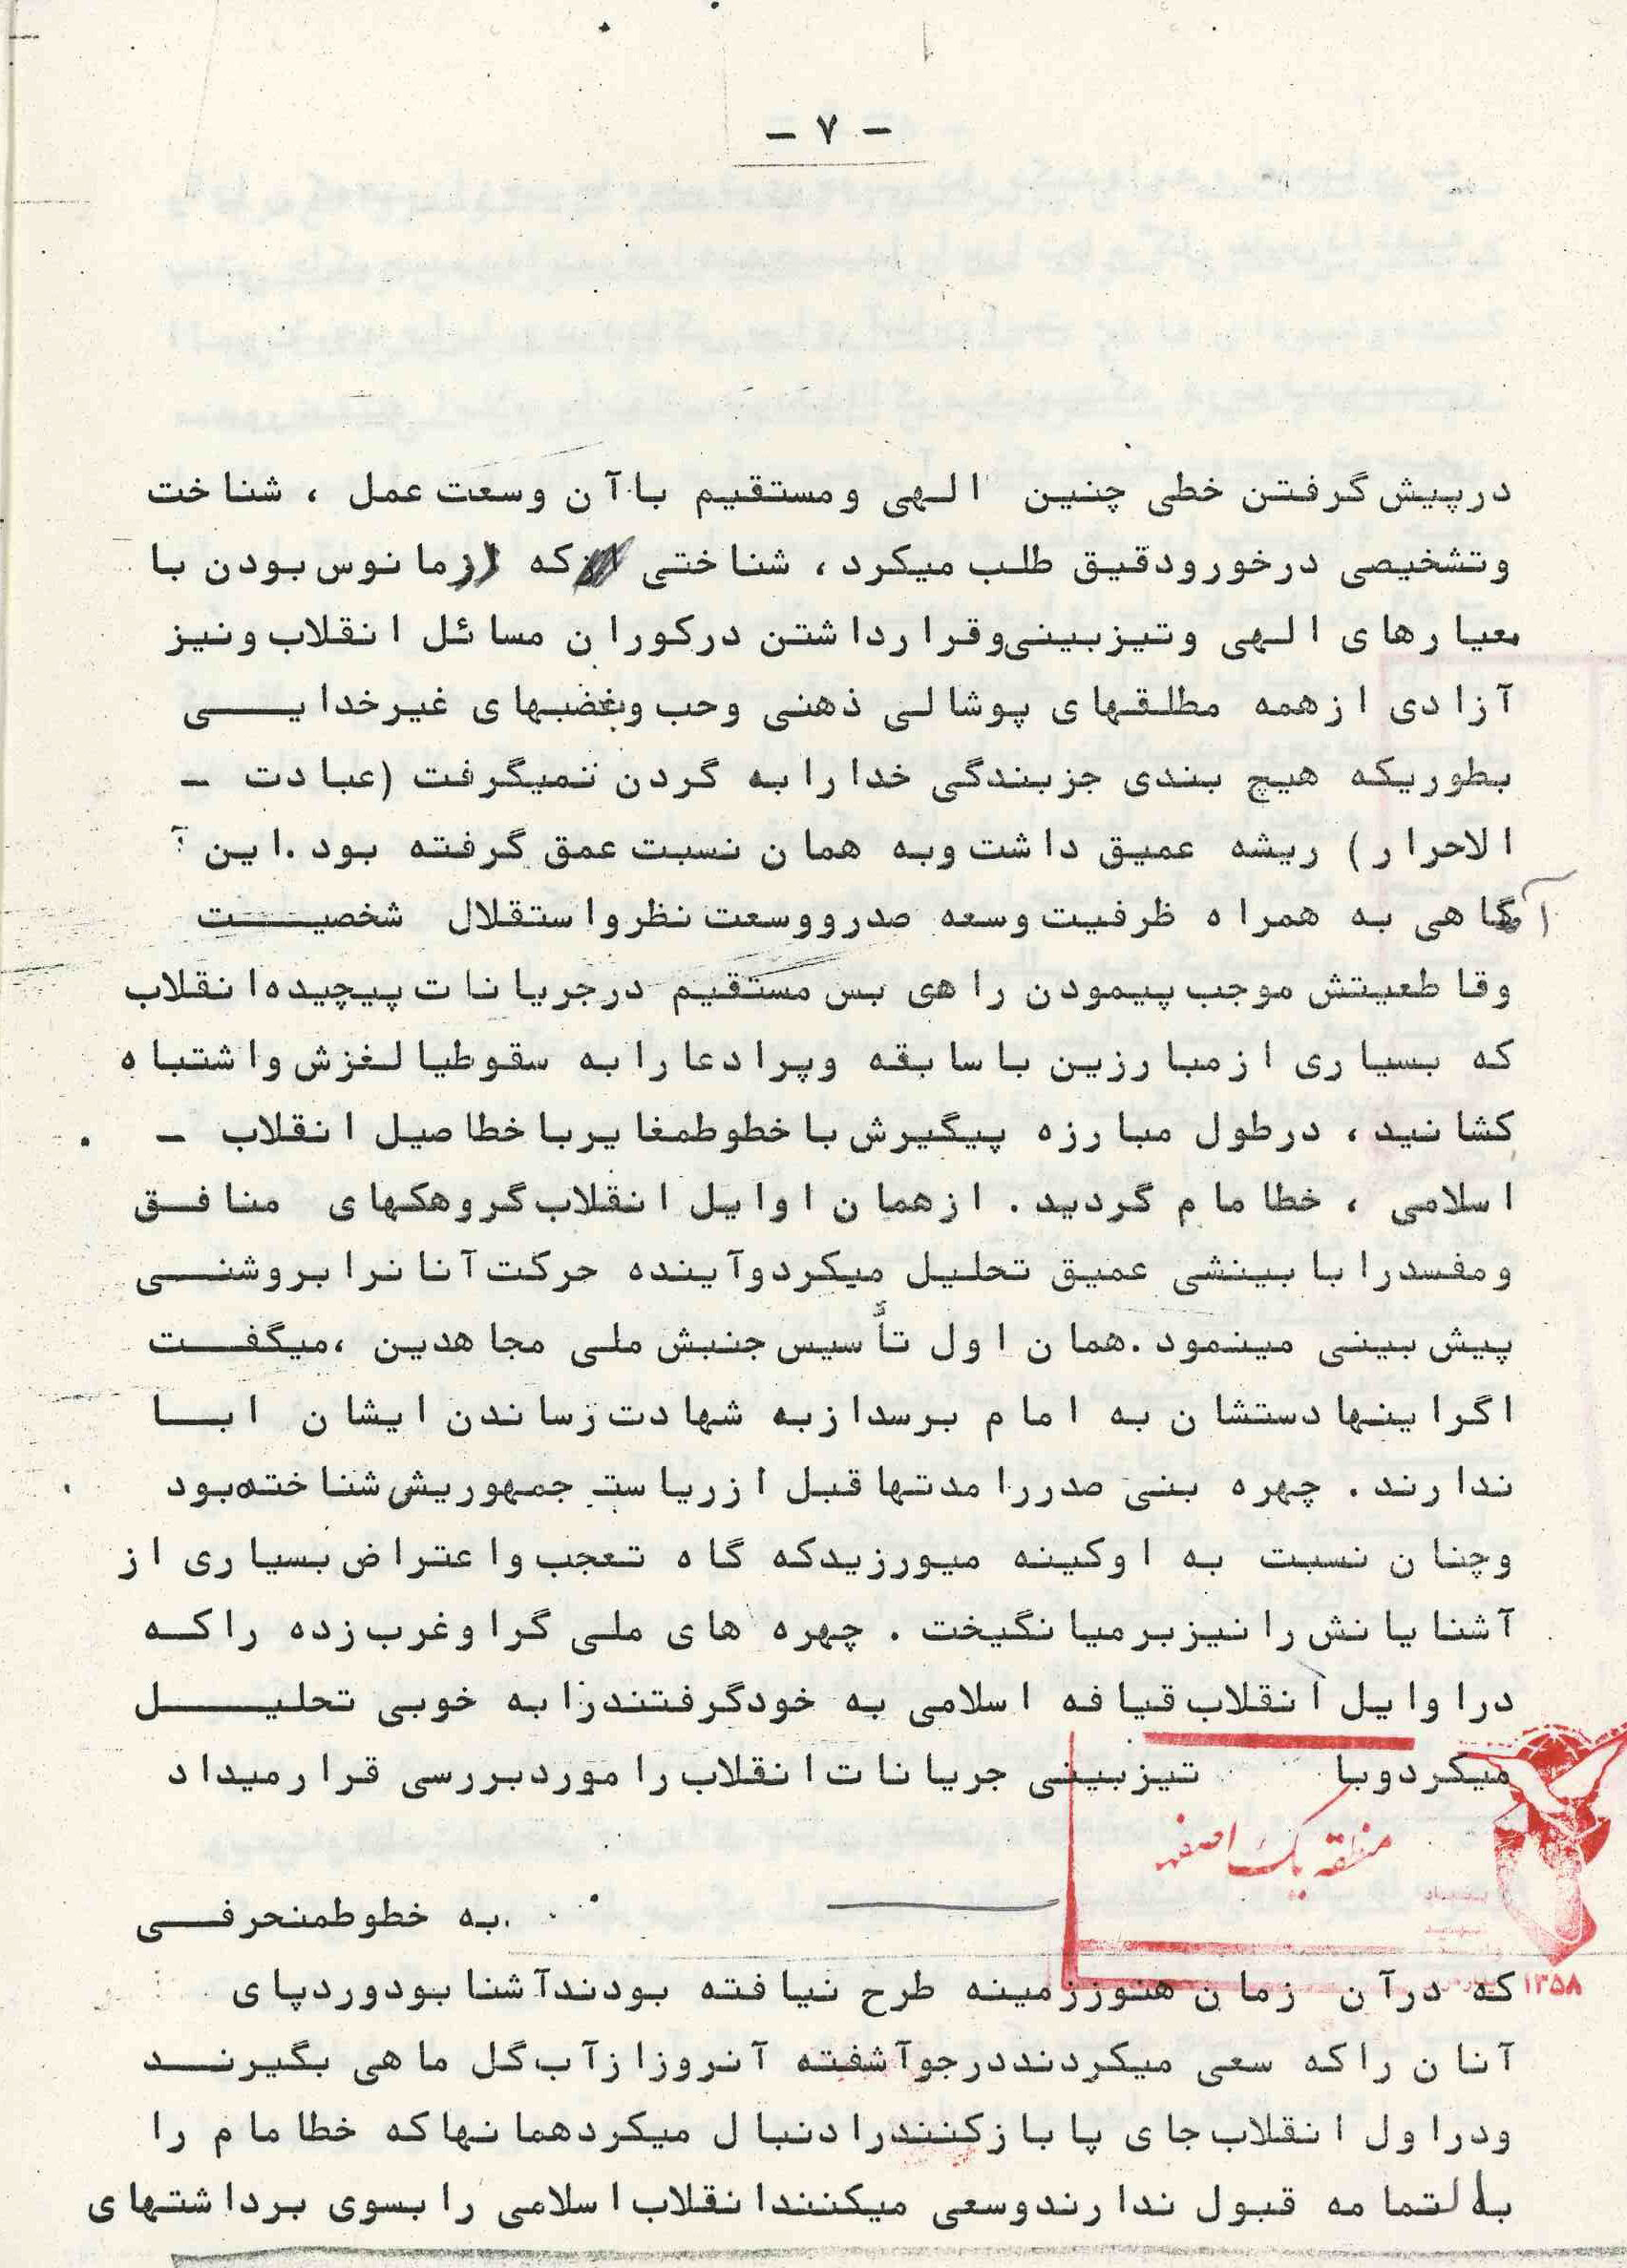 - ۷ -
درپیش گرفتن خطی چنین الهی ومستقیم باآن وسعت عمل ، شناخت
وتشخیصی درخورودقیق طلب میکرد، شناختی که ازمانوس بودن با
معیارهای الهی وتیزبینی‌وقرارداشتن درکوران مسائل انقلاب ونیز
آزادی ازهمه مطلقهای پوشالی ذهنی وحب وبغضبهای غیرخدایی
بطوریکه هیچ بندی جزبندگی خدارابه گردن نمیگرفت (عبادت -
الاحرار) ریشه عمیق داشت وبه همان نسبت عمق گرفته بود.این آ
آگاهی به همراه ظرفیت وسعه صدرووسعت نظرواستقلال شخصیت
وقاطعیتش موجب پیمودن راهی بس مستقیم درجریانات پیچیده انقلاب
که بسیاری ازمبارزین باسابقه وپرادعارابه سقوط‌یالغزش واشتباه
کشانید، درطول مبارزه پیگیرش باخطوط‌مغایرباخط‌اصیل انقلاب -
اسلامی ، خط‌امام گردید. ازهمان اوایل انقلاب گروهکهای منافق
ومفسدرا با بینشی عمیق تحلیل میکردوآینده حرکت آنانرابروشنی
پیش بینی مینمود.همان اول تأسیس جنبش ملی مجاهدین ،میگفت
اگراینهادستشان به امام برسدازبه شهادت رساندن ایشان ابا
ندارند. چهره بنی صدررامدتهاقبل ازریاست جمهوریش‌شناخته‌بود
وچنان نسبت به اوکینه میورزیدکه گاه تعجب واعتراض بسیاری از
آشنایانش رانیزبرمیانگیخت . چهره های ملی گراوغرب زده راکه
دراوایل انقلاب قیافه اسلامی به خودگرفتندرابه خوبی تحلیل
میکردوبا تیزبینی جریانات انقلاب راموردبررسی قرارمیداد
منطقه یک اصفهان
به خطوط‌منحرفی
که درآن زمان هنوززمینه طرح نیافته بودندآشنابودوردپای
۱۳۵۸
آنان راکه سعی میکردنددرجوآشفته آنروزازآب گل ماهی بگیرند
ودراول انقلاب جای پابازکنندرادنبال میکردهمانهاکه خط‌امام را
بالتمامه قبول ندارندوسعی میکنندانقلاب اسلامی رابسوی برداشتهای